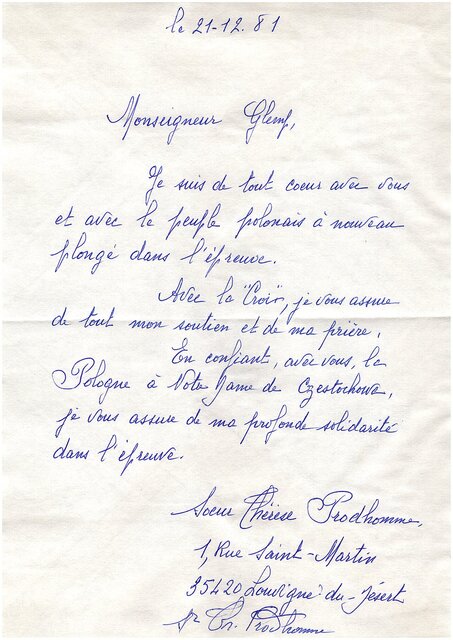 le 21-12.81
Monseigneur Glemp,
Je suis de tout coeur avec vous
et avec le peuple polonais à nouveau
plongé dans l'épreuve.
Avec la "Croix", je vous assure
de tout mon soutien et de ma prière.
En confiant, avec vous, la
Pologne à Notre Dame de Czestochowa,
je vous assure de ma profonde solidarité
dans l'épreuve.
Soeur Thérèse Prodhomme,
1, Rue Saint-Martin
35420 Louvigné-du-Désert
Sr Th. Prodhomme